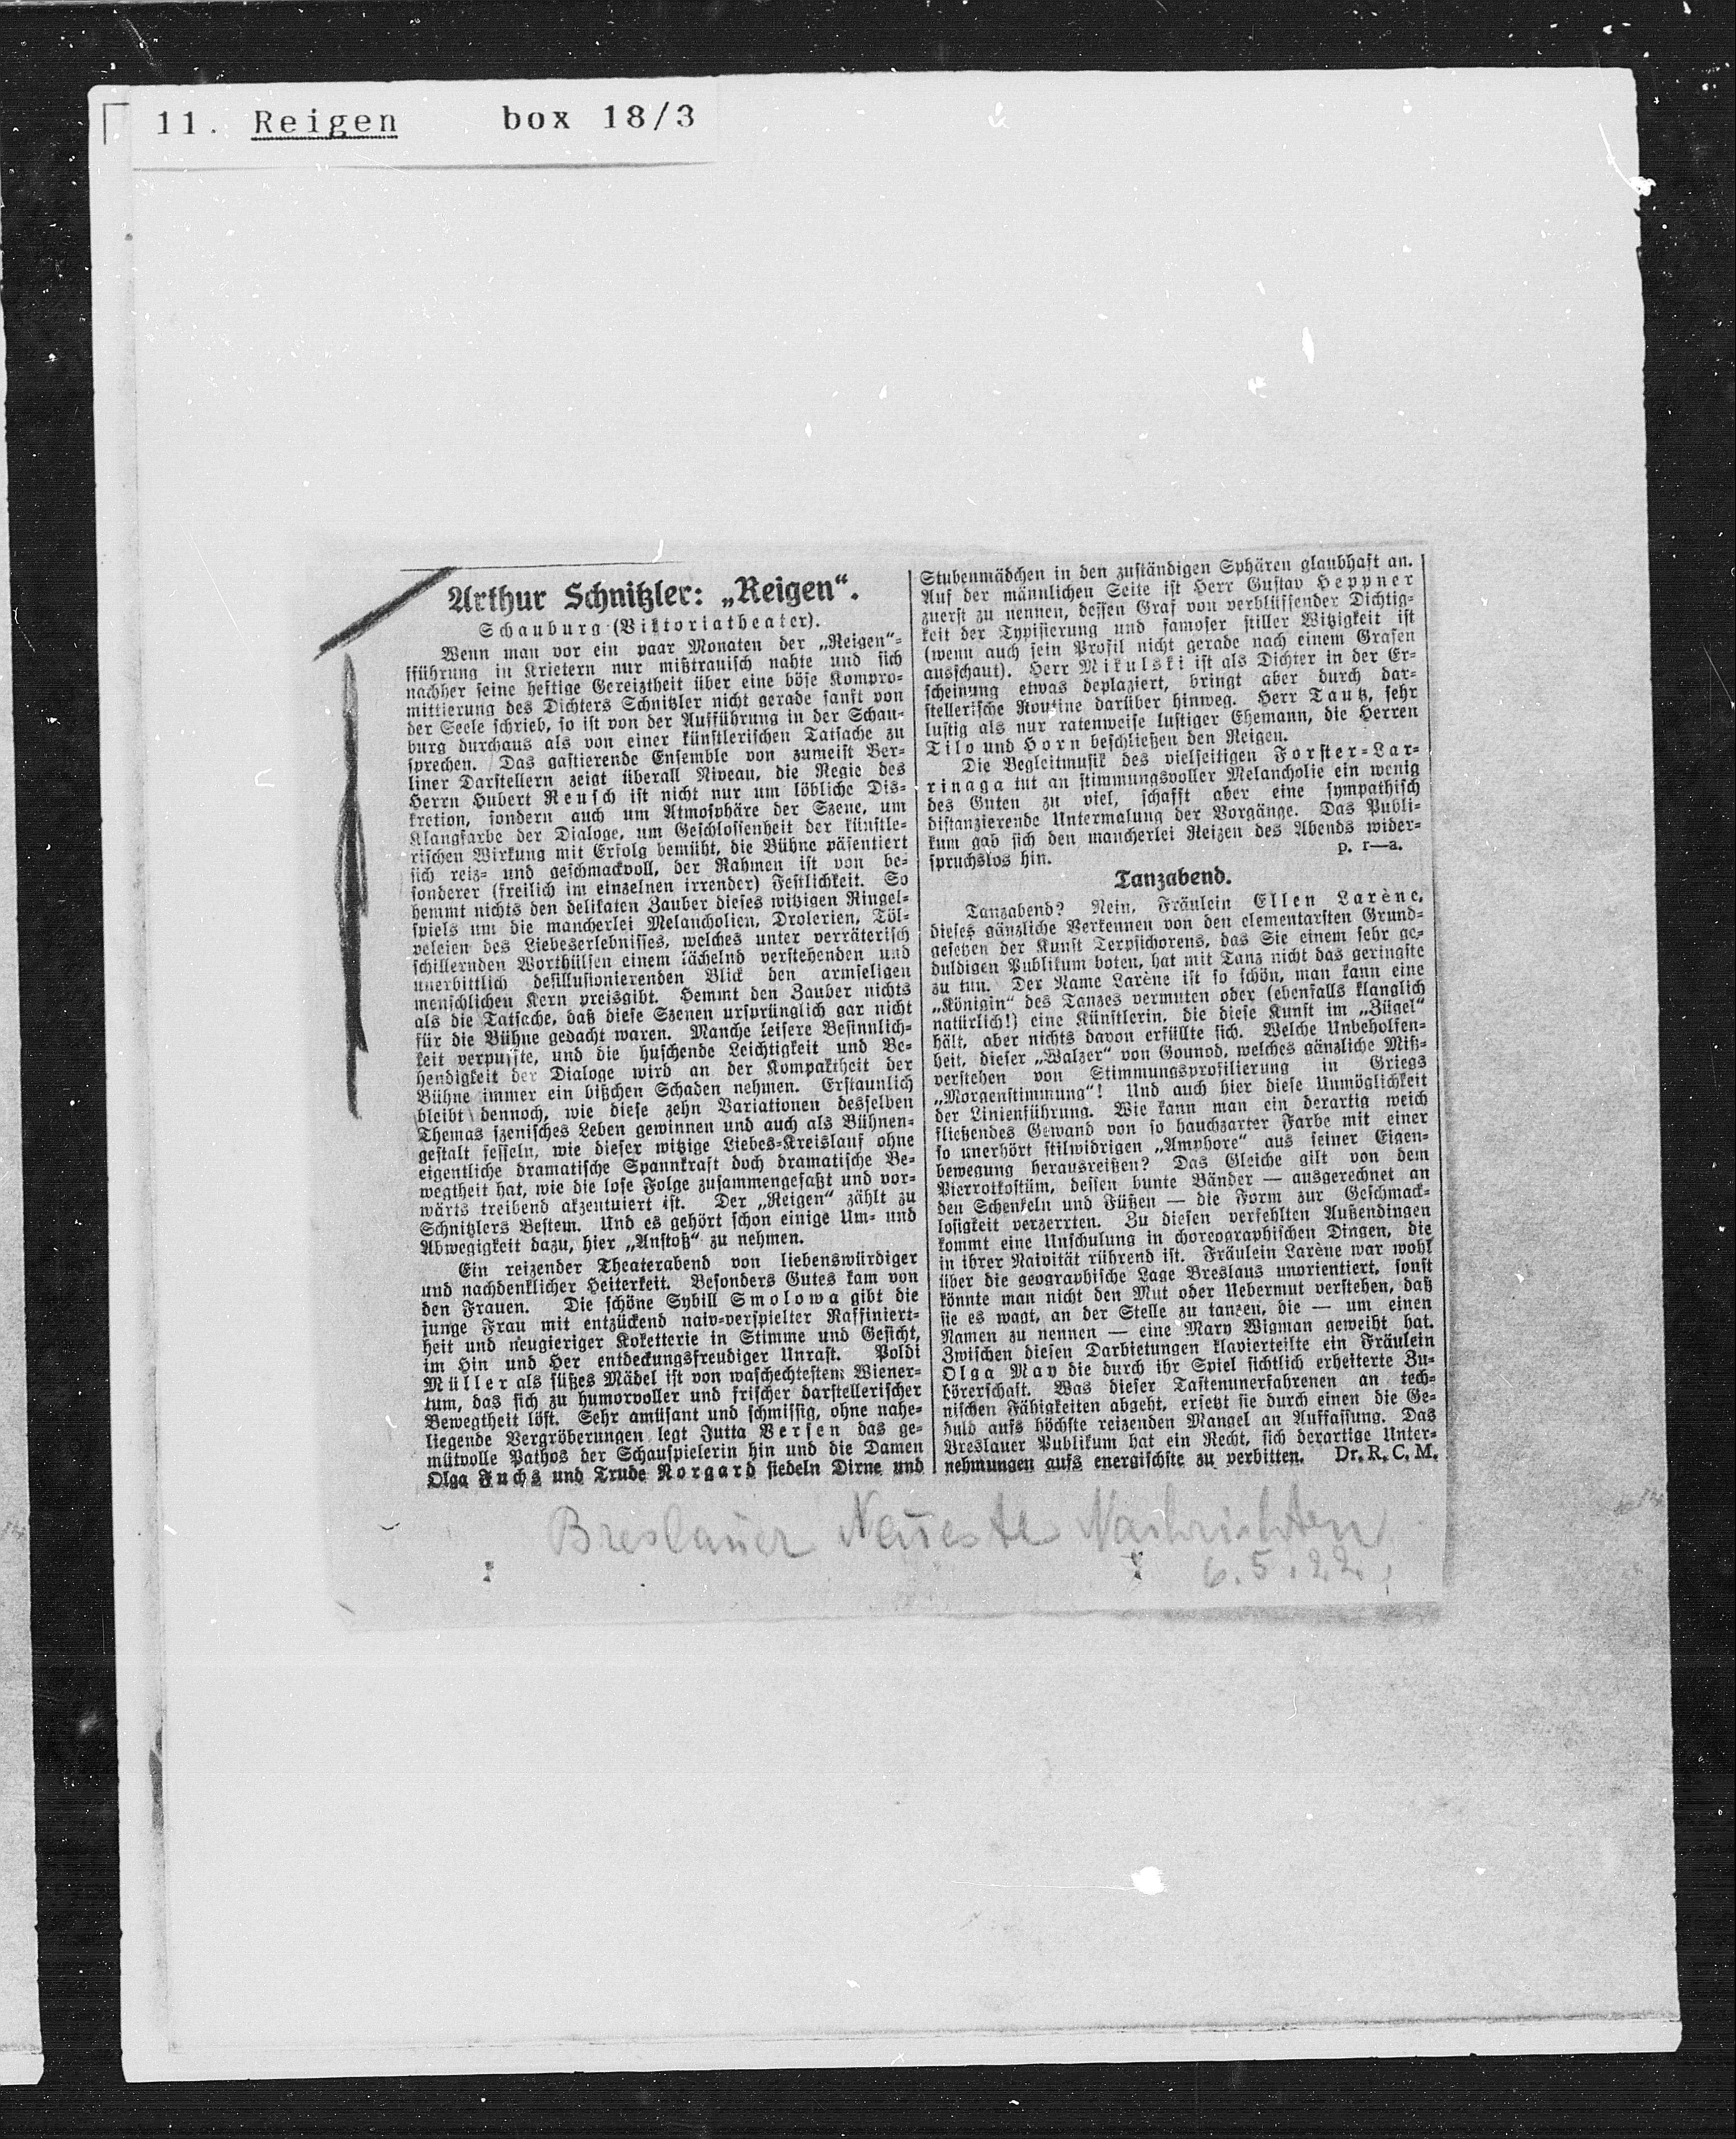 11. Reigen box 18/3
Arthur Schnitzler: „Reigen“.
Schauburg (Viktoriatheater).
Wenn man vor ein paar Monaten der „Reigen“-
fführung in Krietern nur mißtrauisch nahte und sich
nachher seine heftige Gereiztheit über eine böse Kompro-
mittierung des Dichters Schnitzler nicht gerade sanft von
der Seele schrieb, so ist von der Aufführung in der Schau-
burg durchaus als von einer künstlerischen Tatsache zu
sprechen. Das gastierende Ensemble von zumeist Ber-
liner Darstellern zeigt überall Niveau, die Regie des
Herrn Hubert Reusch ist nicht nur um löbliche Dis-
kretion, sondern auch um Atmosphäre der Szene, um
Klangfarbe der Dialoge, um Geschlossenheit der künstle-
rischen Wirkung mit Erfolg bemüht, die Bühne päsentiert
sich reiz- und geschmackvoll, der Rahmen ist von be-
sonderer (freilich im einzelnen irrender) Festlichkeit. So
hemmt nichts den delikaten Zauber dieses witzigen Ringel-
spiels um die mancherlei Melancholien, Drolerien, Töl-
peleien des Liebeserlebnisses, welches unter verräterisch
schillernden Worthülsen einem lächelnd verstehenden und
unerbittlich desillusionierenden Blick den armseligen
menschlichen Kern preisgibt. Hemmt den Zauber nichts
als die Tatsache, daß diese Szenen ursprünglich gar nicht
für die Bühne gedacht waren. Manche leisere Besinnlich-
keit verpuffte, und die huschende Leichtigkeit und Be-
hendigkeit der Dialoge wird an der Kompaktheit der
Bühne immer ein bißchen Schaden nehmen. Erstaunlich
bleibt dennoch, wie diese zehn Variationen desselben
Themas szenisches Leben gewinnen und auch als Bühnen-
gestalt fesseln, wie dieser witzige Liebes-Kreislauf ohne
eigentliche dramatische Spannkraft doch dramatische Be-
wegtheit hat, wie die lose Folge zusammengefaßt und vor-
wärts treibend akzentuiert ist. Der „Reigen“ zählt zu
Schnitzlers Bestem. Und es gehört schon einige Um- und
Abwegigkeit dazu, hier „Anstoß“ zu nehmen.
Ein reizender Theaterabend von liebenswürdiger
und nachdenklicher Heiterkeit. Besonders Gutes kam von
den Frauen. Die schöne Sybill Smolowa gibt die
junge Frau mit entzückend naiv-verspielter Raffiniert-
heit und neugieriger Koketterie in Stimme und Gesicht,
im Hin und Her entdeckungsfreudiger Unrast. Poldi
Müller als süßes Mädel ist von waschechtestem Wiener-
tum, das sich zu humorvoller und frischer darstellerischer
Bewegtheit löst. Sehr amüsant und schmissig, ohne nahe-
liegende Vergröberungen legt Jutta Versen das ge-
mütvolle Pathos der Schauspielerin hin und die Damen
Olga Fuchs und Trude Norgard siedeln Dirne und
Stubenmädchen in den zuständigen Sphären glaubhaft an.
Auf der männlichen Seite ist Herr Gustav Heppner
zuerst zu nennen, dessen Graf von verblüffender Dichtig-
keit der Typisierung und famoser stiller Witzigkeit ist
(wenn auch sein Profil nicht gerade nach einem Grafen
ausschaut). Herr Mikulski ist als Dichter in der Er-
scheinung etwas deplaziert, bringt aber durch dar-
stellerische Routine darüber hinweg. Herr Tautz, sehr
lustig als nur ratenweise lustiger Ehemann, die Herren
Tilo und Horn beschließen den Reigen.
Die Begleitmusik des vielseitigen Forster-Lar-
rinaga tut an stimmungsvoller Melancholie ein wenig
des Guten zu viel, schafft aber eine sympathisch
distanzierende Untermalung der Vorgänge. Das Publi-
kum gab sich den mancherlei Reizen des Abends wider-
spruchslos hin.
p. r—a.
Tanzabend.
Tanzabend? Nein, Fräulein Ellen Larène,
dieses gänzliche Verkennen von den elementarsten Grund-
gesetzen der Kunst Terpsichorens, das Sie einem sehr ge-
duldigen Publikum boten, hat mit Tanz nicht das geringste
zu tun. Der Name Larène ist so schön, man kann eine
„Königin“ des Tanzes vermuten oder (ebenfalls klanglich
natürlich!) eine Künstlerin, die diese Kunst im „Zügel“
hält, aber nichts davon erfüllte sich. Welche Unbeholfen-
heit, dieser „Walzer“ von Gounod, welches gänzliche Miß-
verstehen von Stimmungsprofilierung in Griegs
„Morgenstimmung“! Und auch hier diese Unmöglichkeit
der Linienführung. Wie kann man ein derartig weich
fließendes Gewand von so hauchzarter Farbe mit einer
so unerhört stilwidrigen „Amphore“ aus seiner Eigen-
bewegung herausreißen? Das Gleiche gilt von dem
Pierrotkostüm, dessen bunte Bänder — ausgerechnet an
den Schenkeln und Füßen — die Form zur Geschmack-
losigkeit verzerrten. Zu diesen verfehlten Außendingen
kommt eine Unschulung in choreographischen Dingen, die
in ihrer Naivität rührend ist. Fräulein Larène war wohl
über die geographische Lage Breslaus unorientiert, sonst
könnte man nicht den Mut oder Uebermut verstehen, daß
sie es wagt, an der Stelle zu tanzen, die — um einen
Namen zu nennen — eine Mary Wigman geweiht hat.
Zwischen diesen Darbietungen klavierteilte ein Fräulein
Olga May die durch ihr Spiel sichtlich erheiterte Zu-
hörerschaft. Was dieser Tastenunerfahrenen an tech-
nischen Fähigkeiten abgeht, ersetzt sie durch einen die Ge-
duld aufs höchste reizenden Mangel an Auffassung. Das
Breslauer Publikum hat ein Recht, sich derartige Unter-
nehmungen aufs energischste zu verbitten. Dr. R. C. M.
Breslauer Neueste Nachrichten
6.5.22.